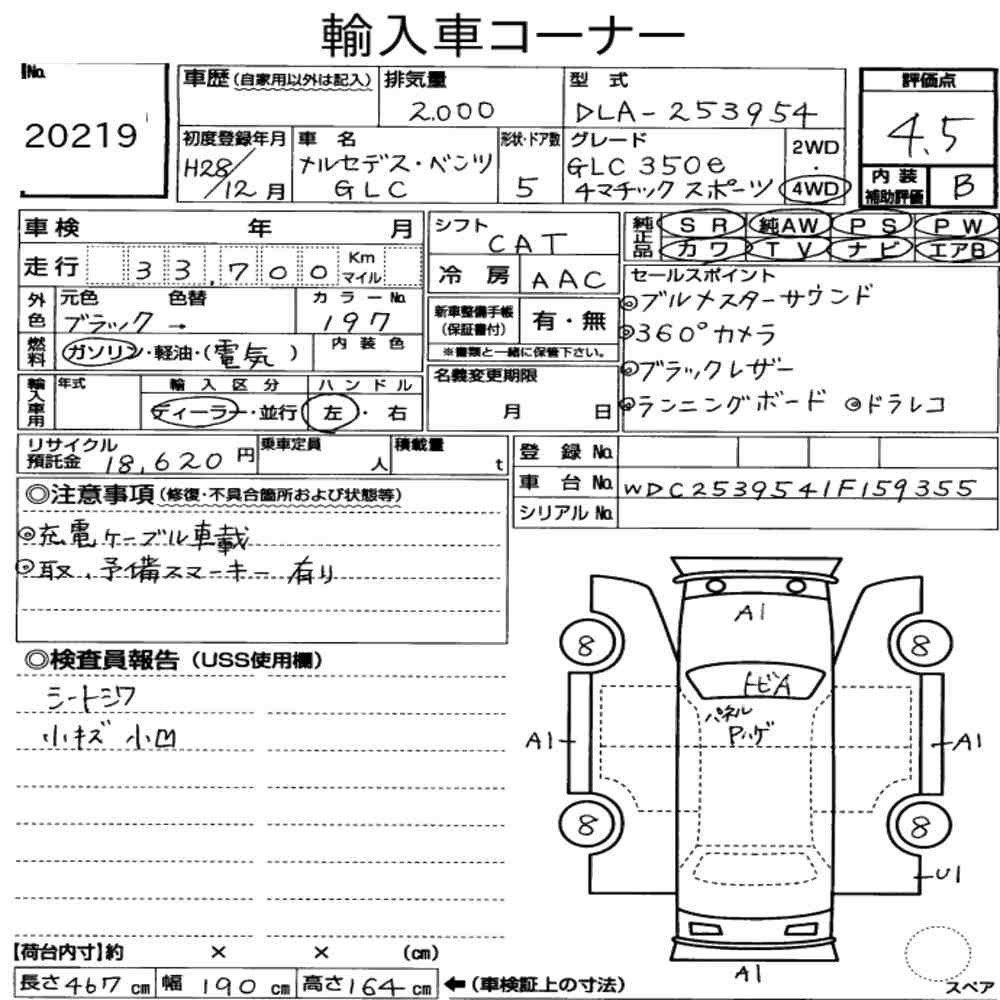 輸入車コーナー
No.
20219
車歴(自家用以外は記入)
排気量
2.000
型式
DLA-253954
評価点
4.5
初度登録年月
H28/12月
車名
メルセデス・ベンツ
GLC
形状・ドア数
5
グレード
GLC 350e
4マチック スポーツ
2WD
・
4WD
内装
補助評価
B
車検 年 月
走行 33,700 Km
マイル
シフト
CAT
冷房 AAC
純正品
SR 純AW PS PW
カワ TV ナビ エアB
外色
元色 色替
ブラック→
カラーNo.
197
燃料
ガソリン・軽油・(電気)
内装色
新車整備手帳
(保証書付)
有・無
※書類と一緒に保管下さい。
セールスポイント
◎ブルメスターサウンド
◎360°カメラ
◎ブラックレザー
◎ランニングボード ◎ドラレコ
輸入車用
年式
輸入区分
ディーラー・並行
ハンドル
左・右
名義変更期限
月 日
リサイクル
預託金 18,620円
乗車定員
人
積載量
t
登録No.
車台No. WDC2539541F159355
シリアルNo.
◎注意事項(修復・不具合箇所および状態等)
◎充電ケーブル車載
◎取、予備スマーキー有り
◎検査員報告(USS使用欄)
シートシワ
小キズ 小凹
A1
8
8
トビA
パネル
Pハゲ
A1
A1
8
8
U1
A1
スペア
【荷台内寸】約 × × (cm)
長さ467cm 幅190cm 高さ164cm ←(車検証上の寸法)